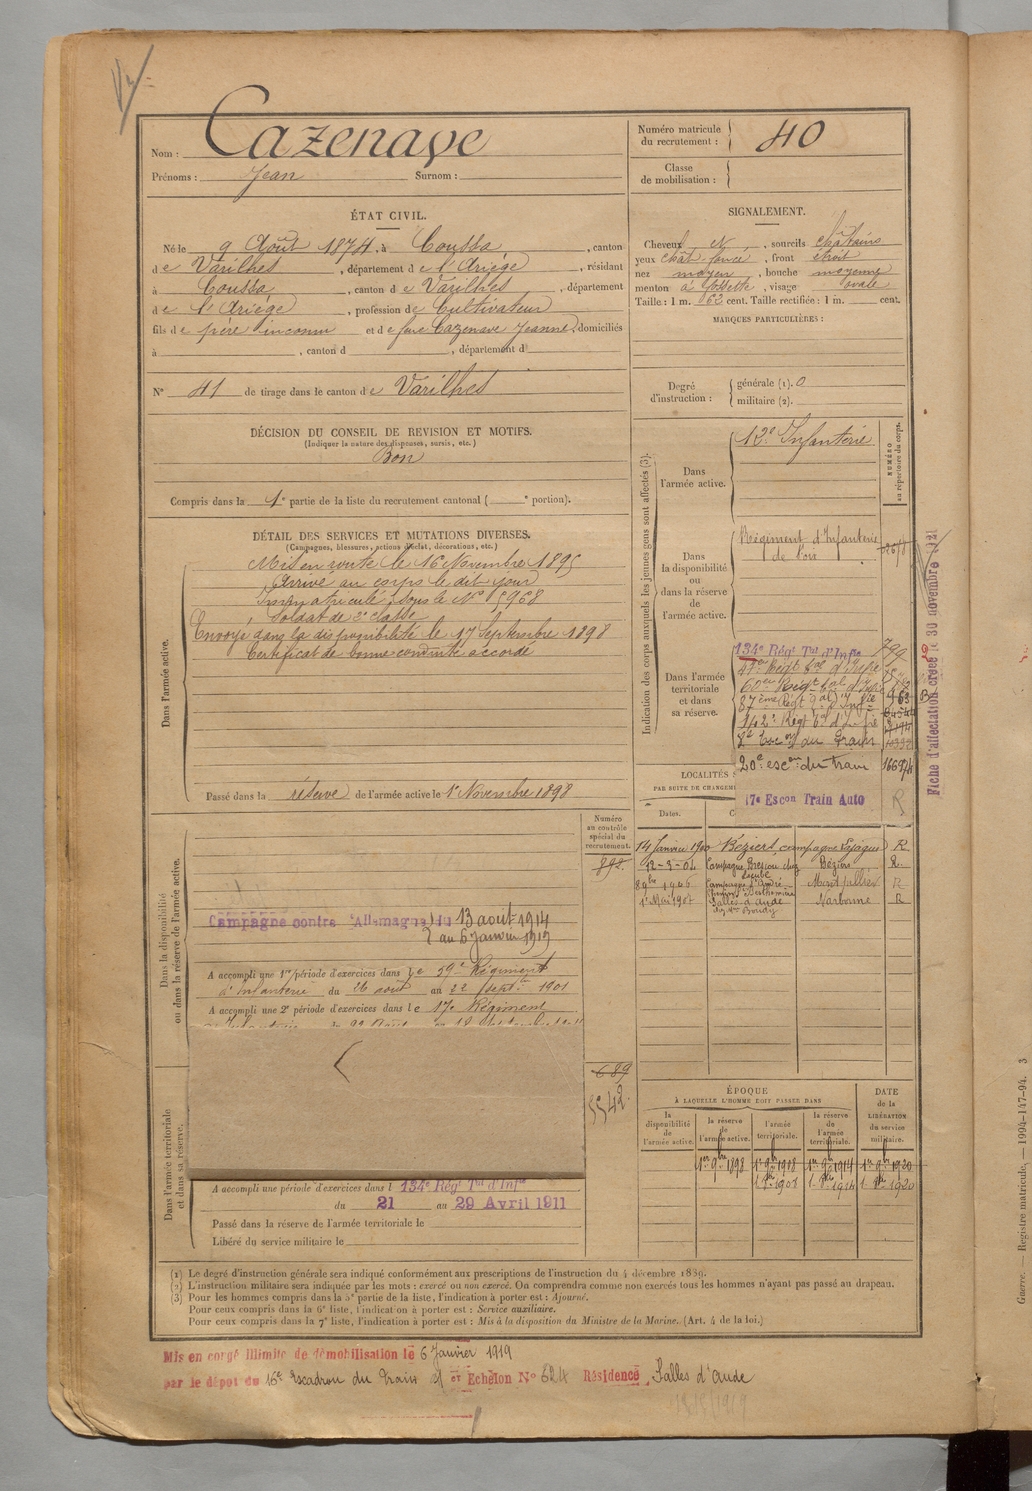 Nom : Cazenave
Prénoms : Jean Surnom :
Numéro matricule du recrutement : 40
Classe de mobilisation :
ÉTAT CIVIL.
Né le 9 Août 1874, à Coussa, canton
de Varilhes, département de l'Ariège, résidant
à Coussa, canton de Varilhes, département
de l'Ariège, profession de Cultivateur
fils de père inconnu et de feue Cazenave Jeanne, domiciliés
à , canton d , département d
N° 41 de tirage dans le canton de Varilhes
SIGNALEMENT.
Cheveux N, sourcils châtains
yeux chat. foncé, front étroit
nez moyen, bouche moyenne
menton à fossette, visage ovale
Taille : 1 m. 162 cent. Taille rectifiée : 1 m. cent.
MARQUES PARTICULIÈRES :
Degré d'instruction : générale (1). 0
militaire (2).
DÉCISION DU CONSEIL DE REVISION ET MOTIFS.
(Indiquer la nature des dispenses, sursis, etc.)
Bon
Compris dans la 1e partie de la liste du recrutement cantonal ( e portion).
DÉTAIL DES SERVICES ET MUTATIONS DIVERSES.
(Campagnes, blessures, actions d'éclat, décorations, etc.)
Dans l'armée active.
Mis en route le 16 Novembre 1895
Arrivé au corps le dit jour
Immatriculé sous le N° 5968
Soldat de 2e classe
Envoyé dans la disponibilité le 17 Septembre 1898
Certificat de bonne conduite accordé
Passé dans la réserve de l'armée active le 1e Novembre 1898
Numéro au contrôle spécial du recrutement.
898.
Dans la disponibilité ou dans la réserve de l'armée active.
Campagne contre l'Allemagne du 13 août 1914
au 6 janvier 1919
A accompli une 1re période d'exercices dans le 59e Régiment
d'Infanterie du 26 août au 22 Septbre 1901
A accompli une 2e période d'exercices dans le 17e Régiment
689
5542
Dans l'armée territoriale et dans sa réserve.
A accompli une période d'exercices dans l 134e Régt Tal d'Infie
du 21 au 29 Avril 1911
Passé dans la réserve de l'armée territoriale le
Libéré du service militaire le
Indication des corps auxquels les jeunes gens sont affectés (3).
NUMÉRO au répertoire du corps.
Dans l'armée active.
12e Infanterie
Dans la disponibilité ou dans la réserve de l'armée active.
Régiment d'Infanterie
de Foix
Dans l'armée territoriale et dans sa réserve.
134e Régt Tal d'Infie 799
87ème Régt
142e Régt
Esc du Train
20e escon du train
17e Escon Train Auto R
Fiche d'affectation créée le 30 novembre 1921
LOCALITÉS
PAR SUITE DE CHANGEM
Dates.
14 Janvier 1900 Béziers, campagne R
12-3-04 Campagne Béziers R.
Campagne d'André Montpellier R
1er Mai 1907 Salles d'Aude Narbonne R
ÉPOQUE
À LAQUELLE L'HOMME DOIT PASSER DANS
la disponibilité de l'armée active.
la réserve de l'armée active.
l'armée territoriale.
la réserve de l'armée territoriale.
DATE de la LIBÉRATION du service militaire.
1er 9bre 1898 1er 9bre 1908 1er 9bre 1914 1er 9bre 1920
(1) Le degré d'instruction générale sera indiqué conformément aux prescriptions de l'instruction du 4 décembre 1889.
(2) L'instruction militaire sera indiquée par les mots : exercé ou non exercé. On comprendra comme non exercés tous les hommes n'ayant pas passé au drapeau.
(3) Pour les hommes compris dans la 5e partie de la liste, l'indication à porter est : Ajourné.
Pour ceux compris dans la 6e liste, l'indication à porter est : Service auxiliaire.
Pour ceux compris dans la 7e liste, l'indication à porter est : Mis à la disposition du Ministre de la Marine. (Art. 4 de la loi.)
Mis en congé illimité de démobilisation le 6 Janvier 1919
par le dépôt du 16e Escadron du Train Echelon N° 624 Résidence Salles d'Aude
Guerre. — Registre matricule. — 1994-147-94. 3